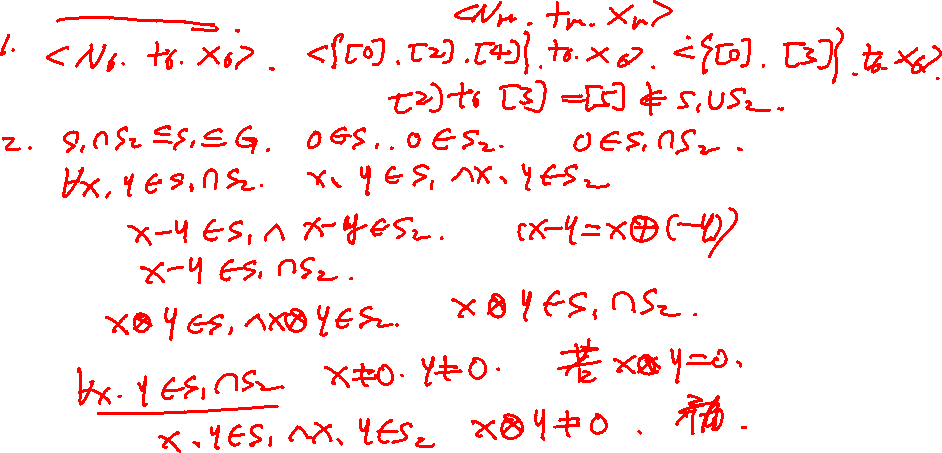 <Nₘ. +ₘ. ×ₘ>
1. <N₆. +₆. ×₆>. <{[0]. [2]. [4]}. +₆. ×₆>. <{[0]. [3]}. +₆ ×₆>.
[2] +₆ [3] = [5] ∉ S₁∪S₂.
2. S₁∩S₂ ⊆ S₁ ⊆ G. 0∈S₁. 0∈S₂. 0∈S₁∩S₂.
∀x, y∈S₁∩S₂. x、y∈S₁ ∧ x、y∈S₂
x-y∈S₁ ∧ x-y∈S₂. (x-y=x⊕(-y))
x-y∈S₁∩S₂.
x⊗y∈S₁ ∧ x⊗y∈S₂. x⊗y∈S₁∩S₂.
∀x. y∈S₁∩S₂ x≠0. y≠0. 若 x⊗y=0.
x、y∈S₁ ∧ x、y∈S₂ x⊗y≠0.